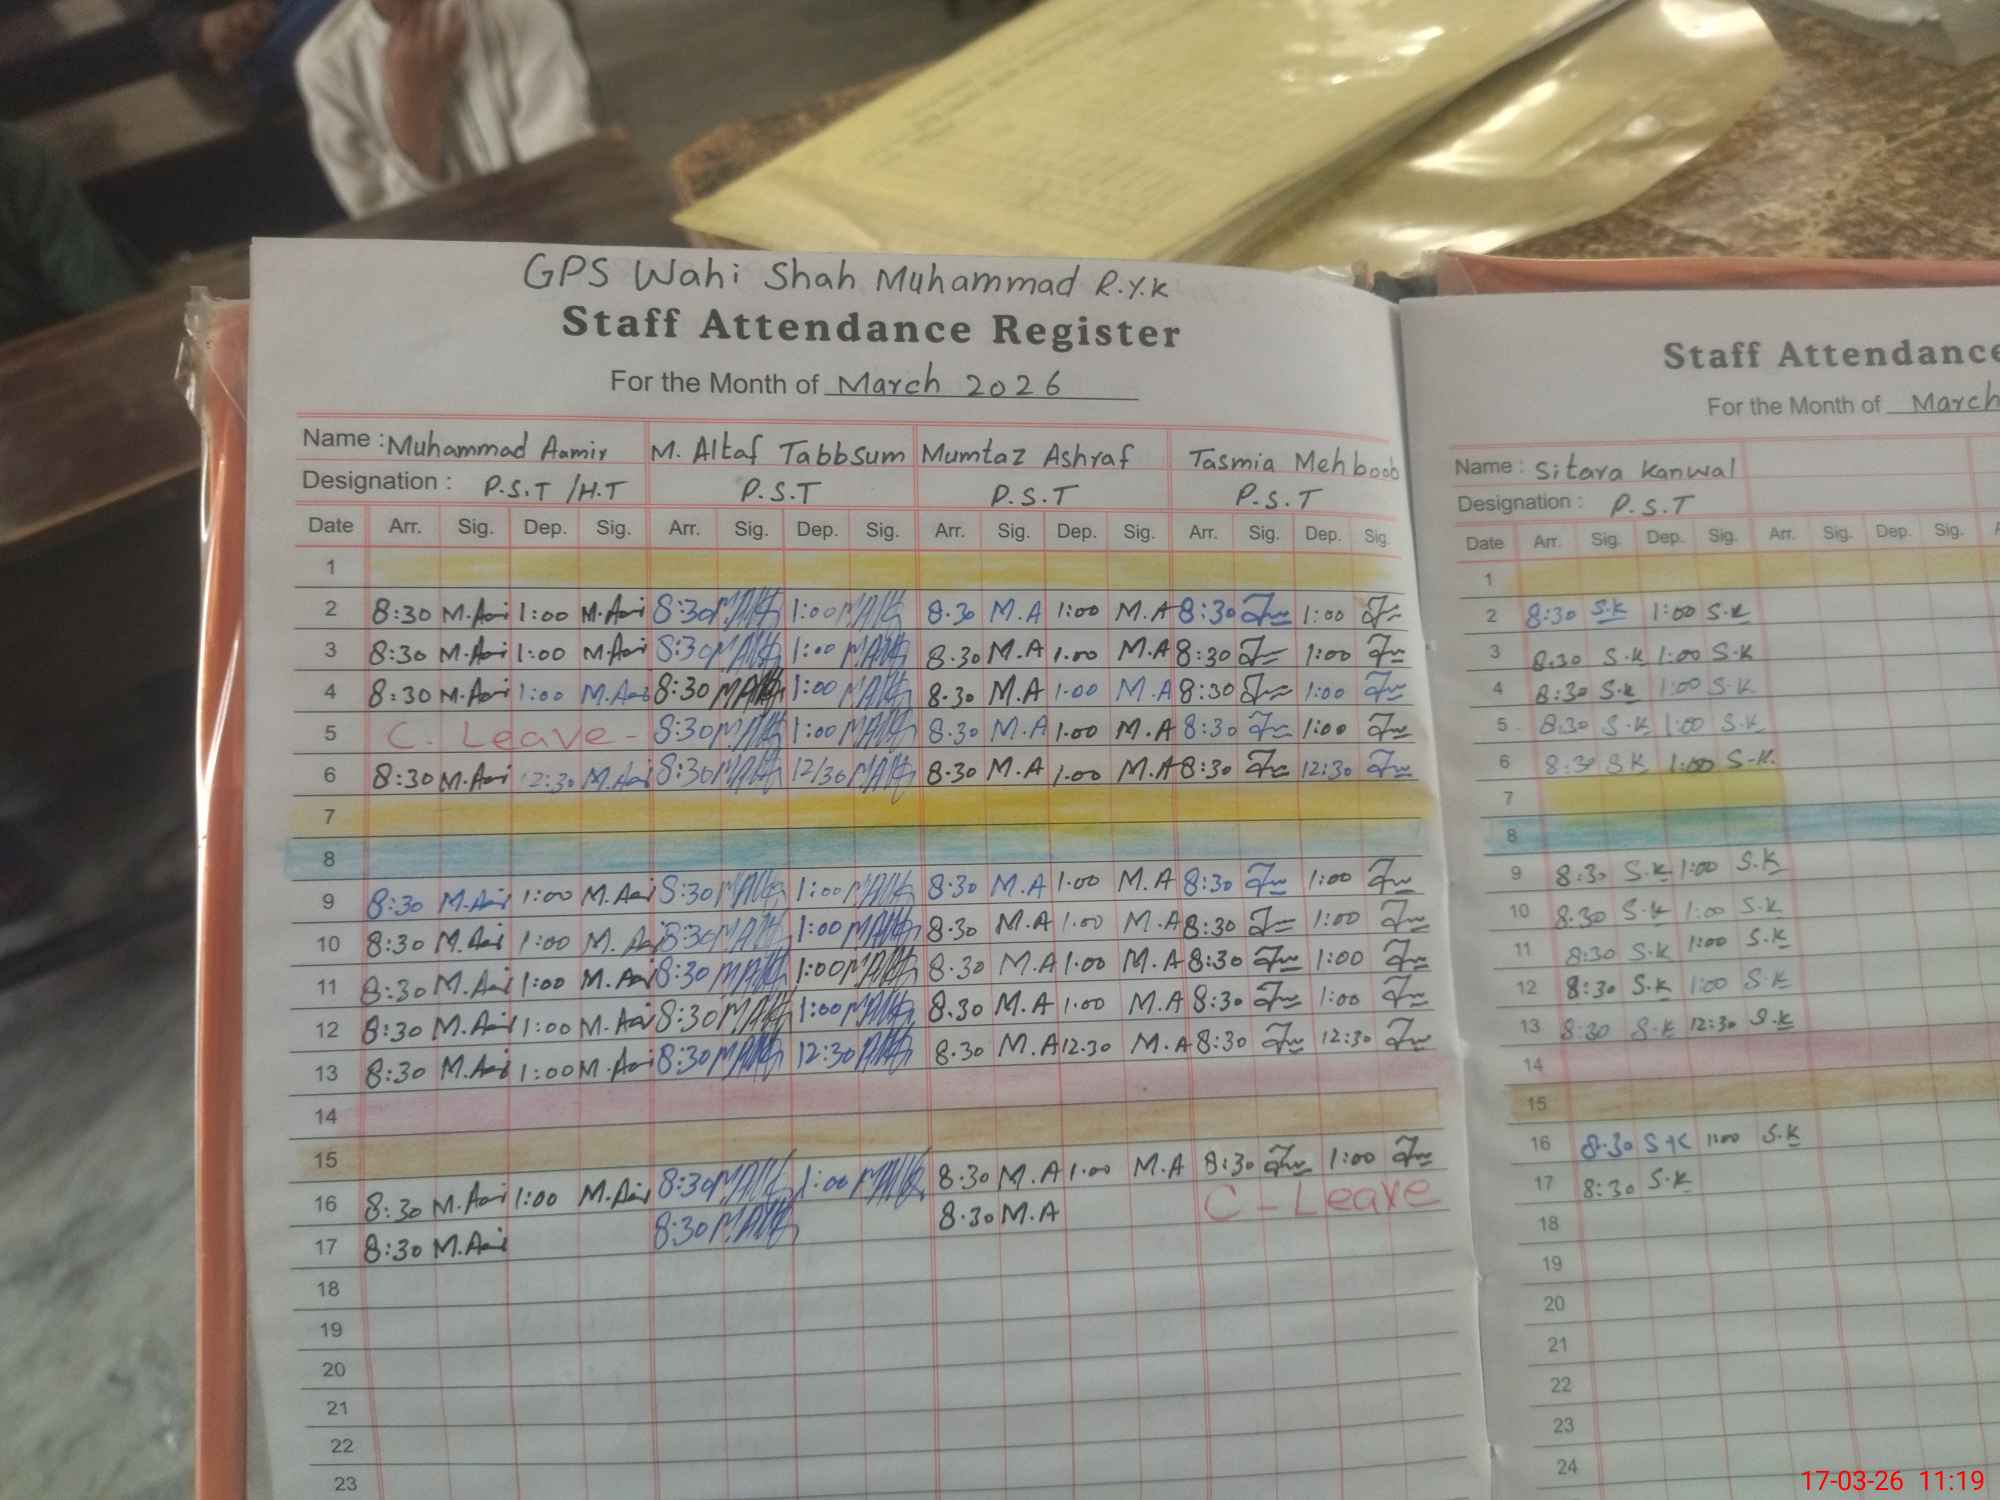 GPS Wahi Shah Muhammad R.Y.K
Staff Attendance Register
For the Month of March 2026
Name : Muhammad Aamir M. Altaf Tabbsum Mumtaz Ashraf Tasmia Mehboob
Designation : P.S.T /H.T P.S.T P.S.T P.S.T
Date Arr. Sig. Dep. Sig. Arr. Sig. Dep. Sig. Arr. Sig. Dep. Sig. Arr. Sig. Dep. Sig.
1
2 8:30 1:00 8:30 1:00 8.30 M.A 1:00 M.A 8:30 1:00
3 8:30 1:00 8:30 1:00 8.30 M.A 1.00 M.A 8:30 1:00
4 8:30 1:00 8:30 1:00 8.30 M.A 1.00 M.A 8:30 1:00
5 C. Leave - 8:30 1:00 8.30 M.A 1.00 M.A 8:30 1:00
6 8:30 12:30 8:30 12/30 8.30 M.A 1.00 M.A 8:30 12:30
7
8
9 8:30 1:00 8:30 1:00 8.30 M.A 1.00 M.A 8:30 1:00
10 8:30 1:00 8:30 1:00 8.30 M.A 1.00 M.A 8:30 1:00
11 8:30 1:00 8:30 1:00 8.30 M.A 1.00 M.A 8:30 1:00
12 8:30 1:00 8:30 1:00 8.30 M.A 1.00 M.A 8:30 1:00
13 8:30 1:00 8:30 12:30 8.30 M.A 12.30 M.A 8:30 12:30
14
15
16 8:30 1:00 8:30 1:00 8.30 M.A 1.00 M.A 8:30 1:00
17 8:30 8:30 8.30 M.A C - Leave
18
19
20
21
22
23
Staff Attendance
For the Month of March
Name : Sitara Kanwal
Designation : P.S.T
Date Arr. Sig. Dep. Sig. Arr. Sig. Dep. Sig.
1
2 8:30 S.K 1:00 S.K
3 8.30 S.K 1:00 S.K
4 8:30 S.K 1:00 S.K
5 8:30 S.K 1:00 S.K
6 8:30 S.K 1:00 S.K.
7
8
9 8:30 S.K 1:00 S.K
10 8:30 S.K 1:00 S.K
11 8:30 S.K 1:00 S.K
12 8:30 S.K 1:00 S.K
13 8:30 S.K 12:30 S.K
14
15
16 8:30 S.K 1:00 S.K
17 8:30 S.K
18
19
20
21
22
23
24
17-03-26 11:19